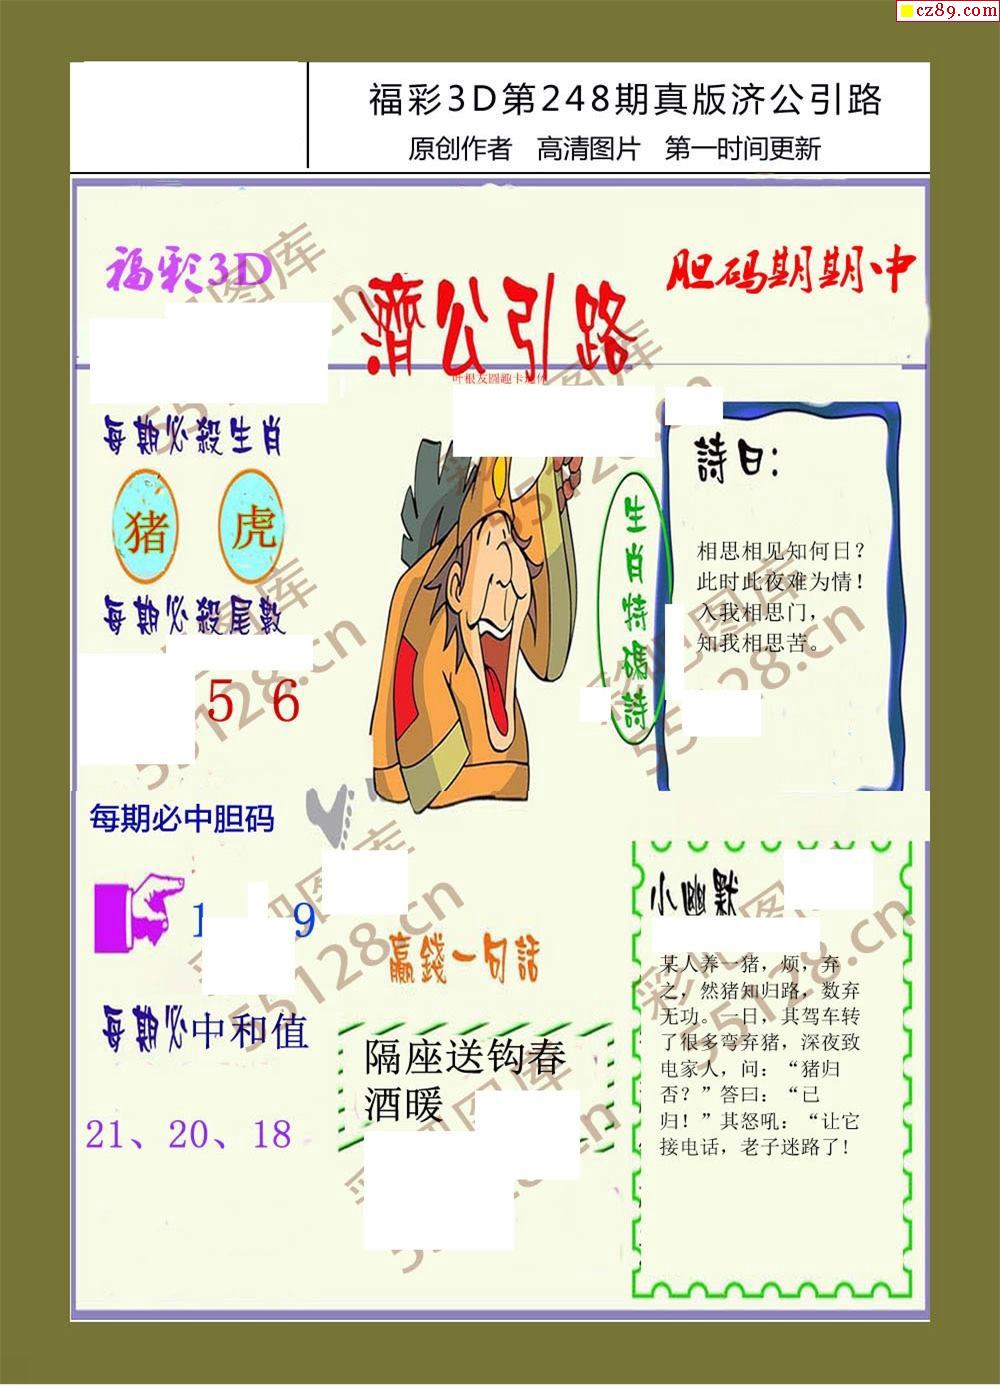 cz89.com
福彩3D第248期真版济公引路
原创作者 高清图片 第一时间更新
福彩3D
濟公引路
胆码期期中
每期必殺生肖
猪 虎
每期必殺尾數
5 6
生肖特碼詩
詩曰:
相思相见知何日?
此时此夜难为情!
入我相思门,
知我相思苦。
每期必中胆码
1 9
每期必中和值
21、20、18
贏錢一句話
隔座送钩春
酒暖
小幽默
某人养一猪,烦,弃
之,然猪知归路,数弃
无功。一日,其驾车转
了很多弯弃猪,深夜致
电家人,问:“猪归
否?”答曰:“已
归!”其怒吼:“让它
接电话,老子迷路了!
彩吧图库
55128.cn